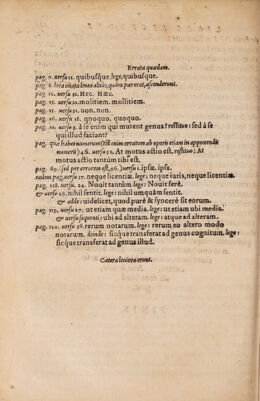 Errata quædam.
pag. 7. versu 11. quibusque. lege, quibusque.
pag. 8. loca citata linea altius, quàm par erat, ascenderunt.
pag. 10. versu 31. Hec. Hæc.
pag. 15. versu 21. molitiem. mollitiem.
pag. 17. uersu 21. uon. non.
pag. 20. uersu 18. gnoquo. quoquo.
pag. 22. uersu 3. à se enim qui mutent genus: restituo: sed à se
qui illud faciant?
pag. que habet numerum (est enim erratum ab operis etiam in apponendis
numeris) 46. uersu 2. At motus actio est. restituo: At
motus actio tantùm tibi est.
pag. 69. (sed per errorem est, 96.) uersu 1. ipsa. ipsa.
eadem pag. uersu 27. neque licentiæ. lege: neque iuris, neque licentiæ.
pag. 118. uersu 24. Nouit tantùm. lege: Nouit ferè.
& uersu 26. nihil sum questum. lege: nihil umquam sentit.
& adde: uidelicet, quod purè & syncerè sit eorum.
pag. 117. uersu 27. ut etiam quæ media. lege: ut etiam ubi media.
& uersu sequenti: ubi ad alteram. lege: atque ad alteram.
pag. 120. uersu 26. rerum notarum. lege: rerum eo altero modo
notarum. deinde: sicque transferat ad genus cognitum. lege:
sicque transferat ad genus illud.
Cætera leuiora erunt.